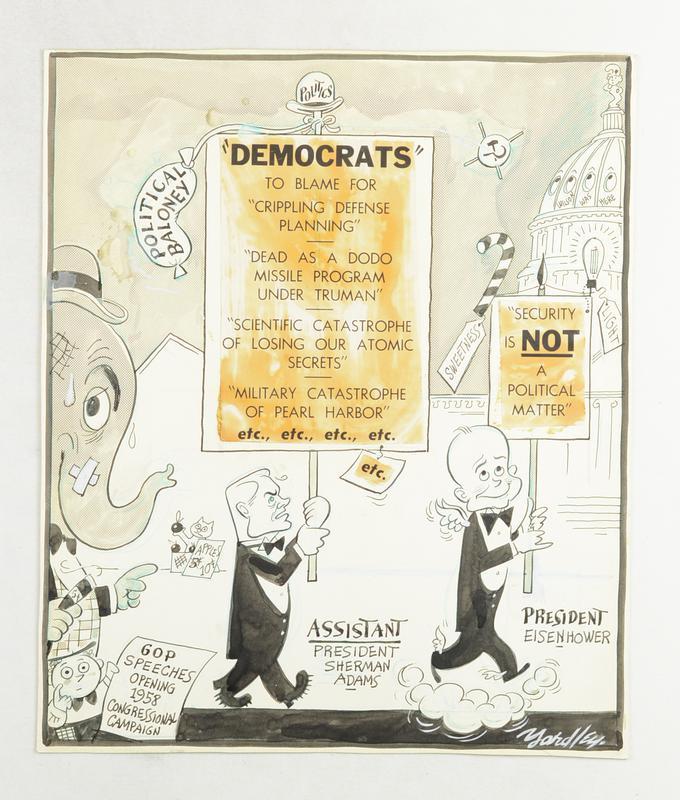 POLITICS
POLITICAL
BALONEY
"DEMOCRATS"
TO BLAME FOR
"CRIPPLING DEFENSE
PLANNING"
"DEAD AS A DODO
MISSILE PROGRAM
UNDER TRUMAN"
"SCIENTIFIC CATASTROPHE
OF LOSING OUR ATOMIC
SECRETS"
"MILITARY CATASTROPHE
OF PEARL HARBOR"
etc., etc., etc., etc.
etc.
WAS
HERE
SWEETNESS
LIGHT
"SECURITY
IS NOT
A
POLITICAL
MATTER"
APPLES
5¢ 10¢
ASSISTANT
PRESIDENT
SHERMAN
ADAMS
PRESIDENT
EISENHOWER
GOP
SPEECHES
OPENING
1958
CONGRESSIONAL
CAMPAIGN
Yardley